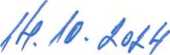 14. 10. 2024